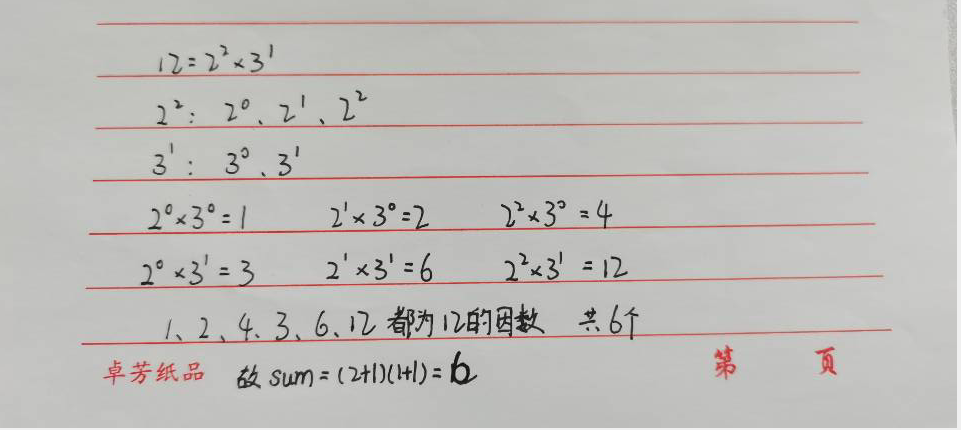 12=2²×3¹
2²: 2⁰、2¹、2²
3¹: 3⁰、3¹
2⁰×3⁰=1 2¹×3⁰=2 2²×3⁰=4
2⁰×3¹=3 2¹×3¹=6 2²×3¹=12
1、2、4、3、6、12 都为12的因数 共6个
卓芳纸品 故 sum=(2+1)(1+1)=6 第 页